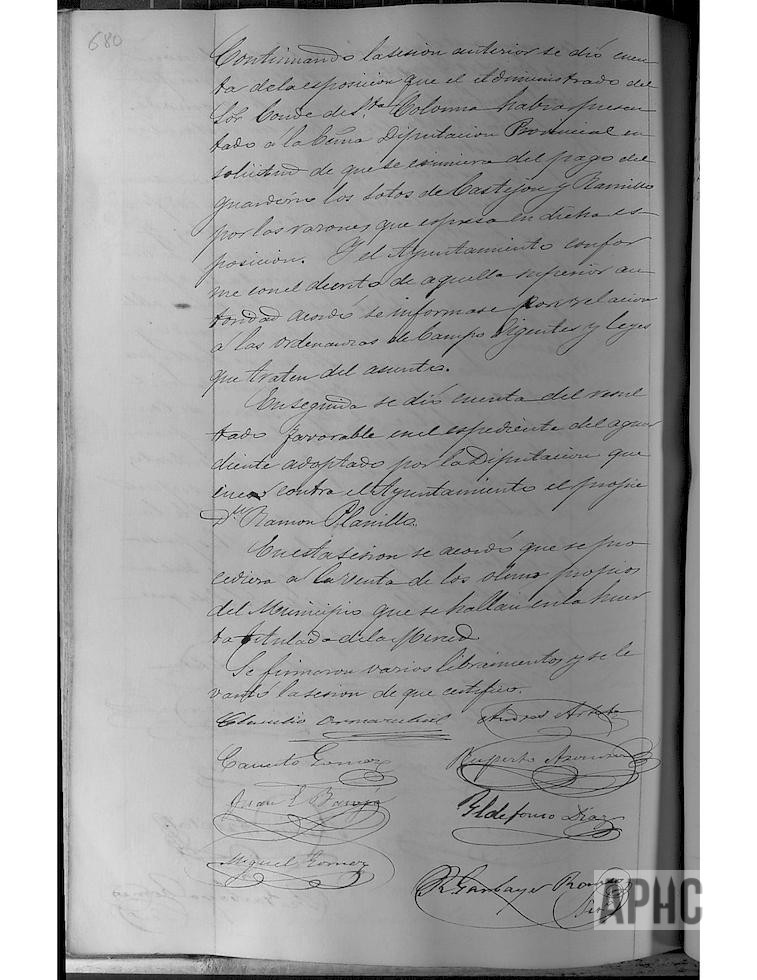 680
Continuando la sesion anterior se dió cuen
ta de la esposicion que el Administrado del
Sor Conde de Sta Coloma habia presen
tado á la Ecma Diputacion Provincial en
solicitud de que se esimiera del pago del
guarderio los sotos de Castejon y Ramillo
por las razones que espresa en dicha es-
posicion. Y el Ayuntamiento confor
me con el decreto de aquella superior au
toridad acordó se informase por relacion
á las ordenanzas de Campo vigentes y leyes
que traten del asunto.
En seguida se dió cuenta del resul
tado favorable en el espediente del aguar
diente adoptado por la Diputacion que
contra el Ayuntamiento el
Dn Ramon Planillo.
En esta sesion se acordó que se pro
cediera a la venta de los olmos propios
del Municipio que se hallan en la huer
ta titulada de la Merced
Se firmaron varios libramientos y se le
vantó la sesion de que certifico.
Claudio
Andres
Canuto Gomez
Ruperto
Juan
Ildefonso Diaz
Miguel Gomez
R. Garbayo
APHC